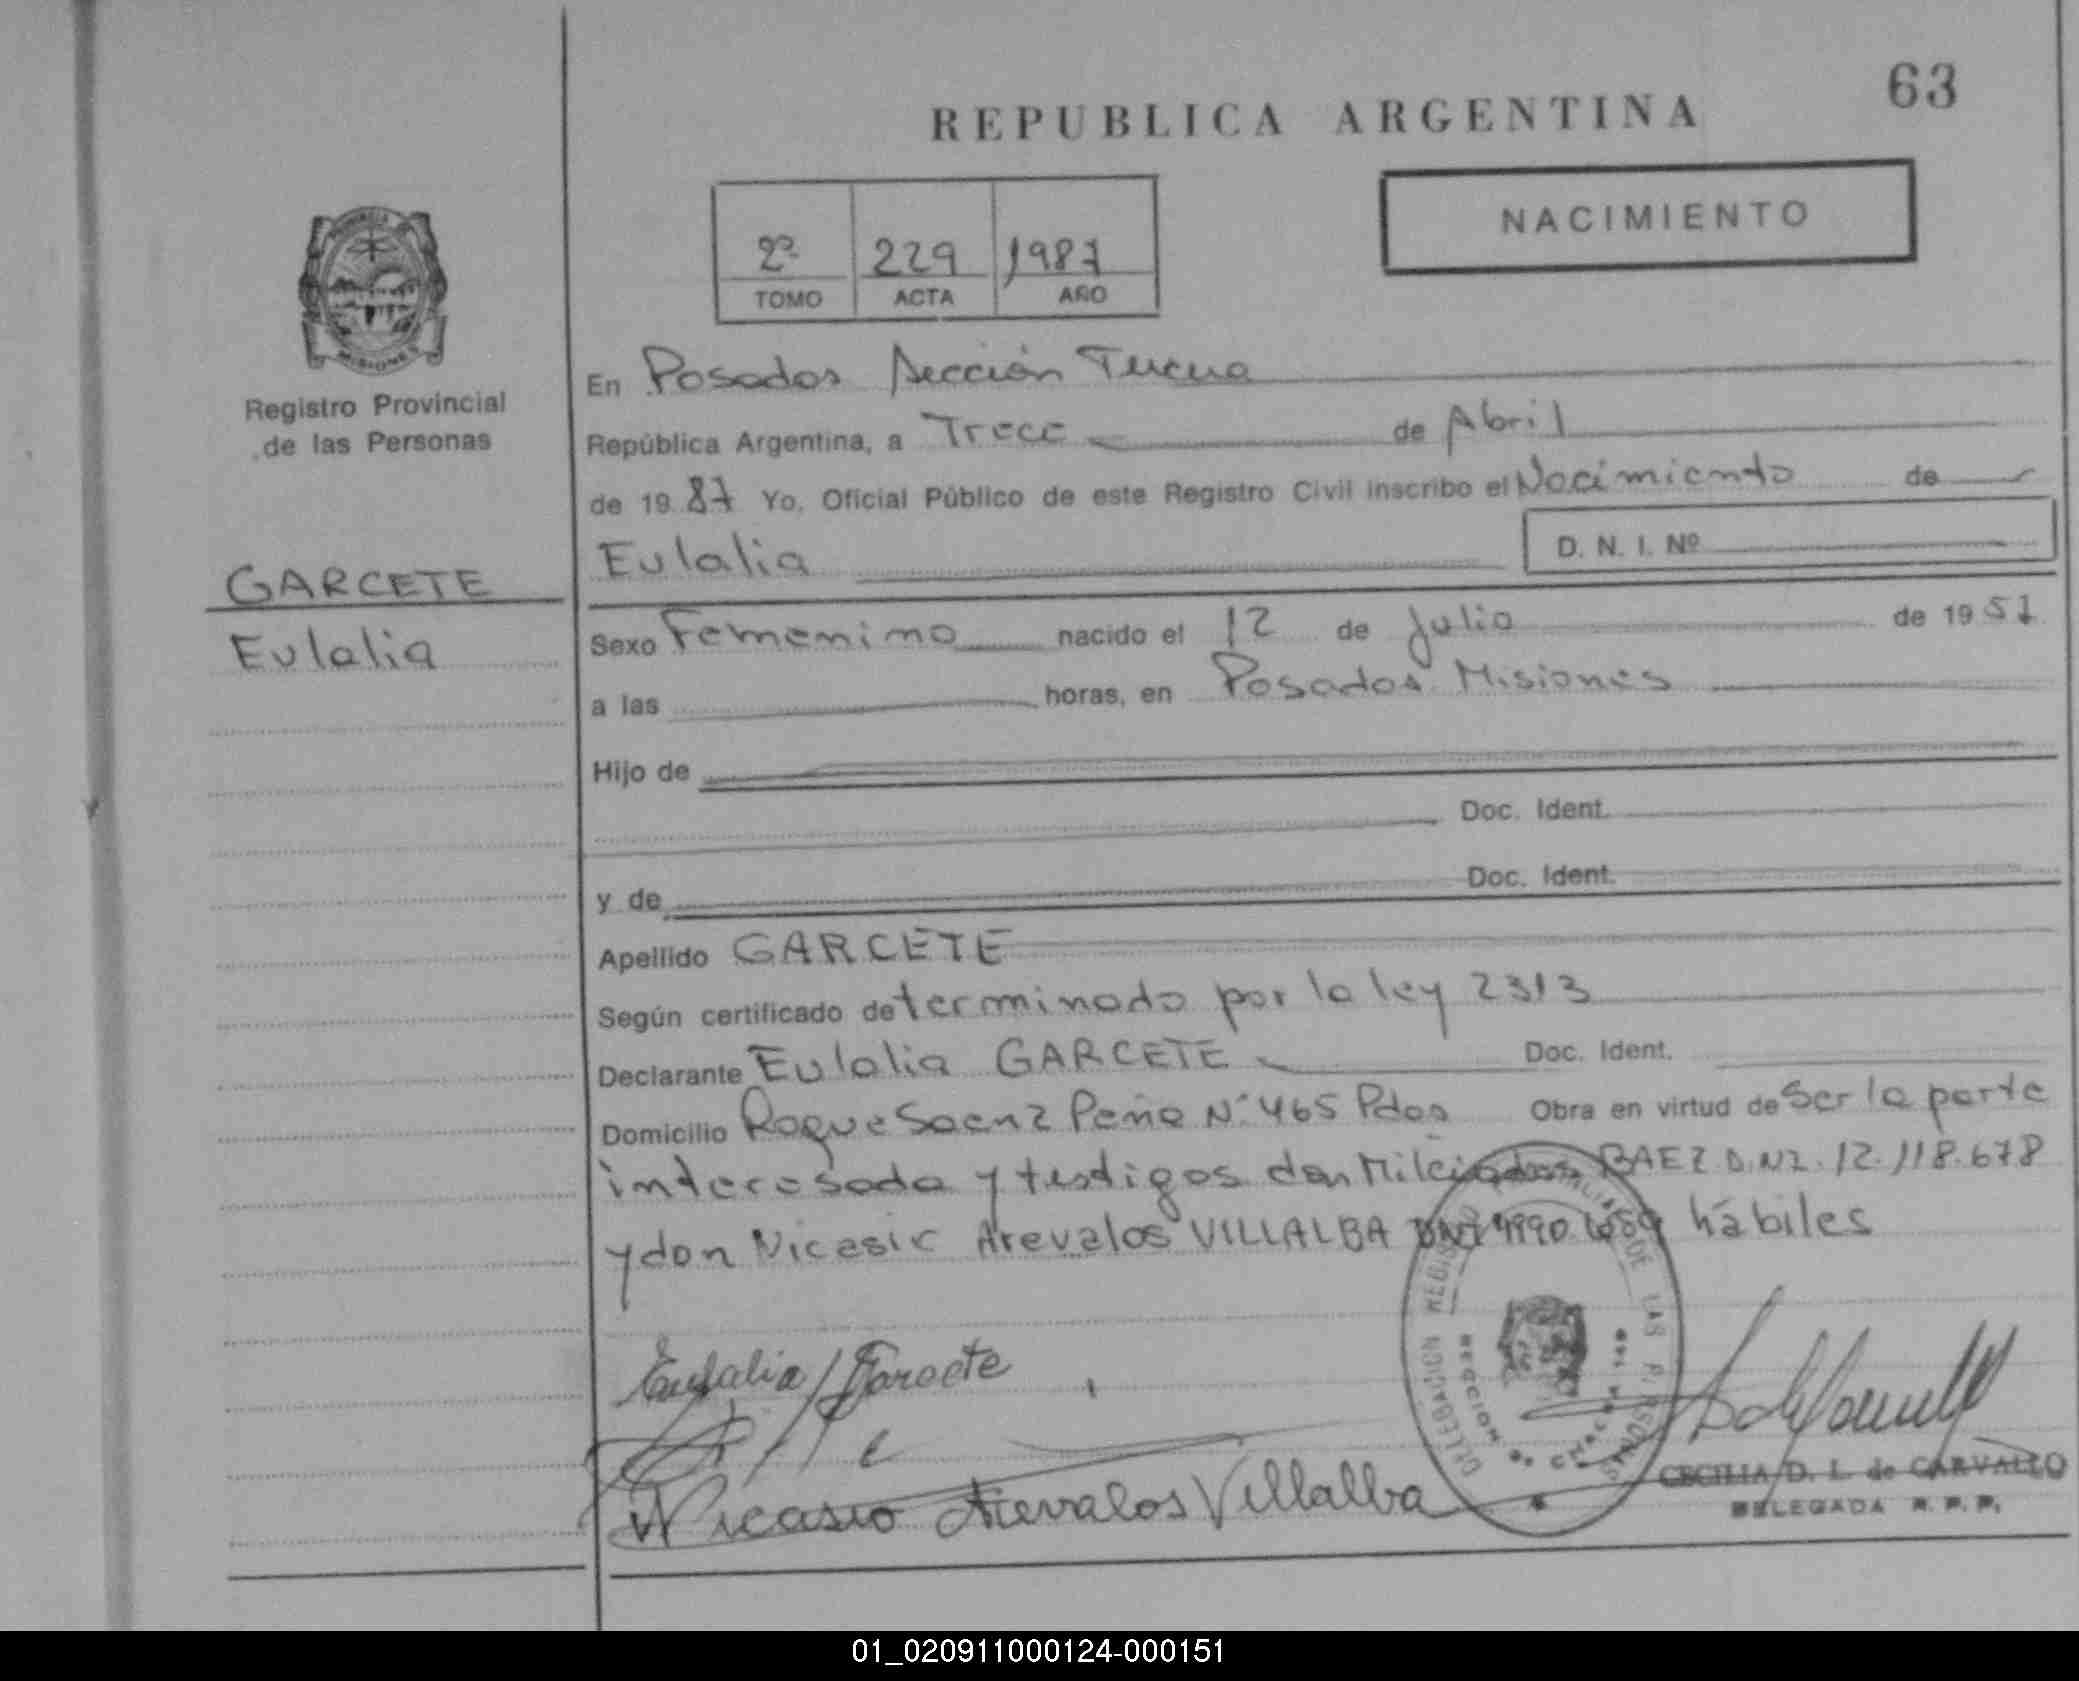 63
REPUBLICA ARGENTINA
NACIMIENTO
2º 229 1987
TOMO ACTA AÑO
PROVINCIA
MISIONES
Registro Provincial
de las Personas
En Posadas Sección Tercera
República Argentina, a Trece de Abril
de 1987 Yo, Oficial Público de este Registro Civil inscribo el Nacimiento de
Eulalia D. N. I. Nº
GARCETE
Eulalia
Sexo Femenino nacido el 12 de Julio de 1957
a las horas, en Posadas Misiones
Hijo de
Doc. Ident.
y de Doc. Ident.
Apellido GARCETE
Según certificado determinado por la ley 2313
Declarante Eulalia GARCETE Doc. Ident.
Domicilio Roque Saenz Peña Nº 465 Pdas Obra en virtud de Ser la parte
interesada y testigos don Milciades BAEZ D.N.I. 12.118.678
y don Nicasio Arevalos VILLALBA DNI hábiles
Eulalia Garcete
Nicasio Arevalos Villalba
DELEGACION REGISTRO DE LAS PERSONAS
CECILIA D. L. de CARVALLO
DELEGADA R. P. P.
01_020911000124-000151